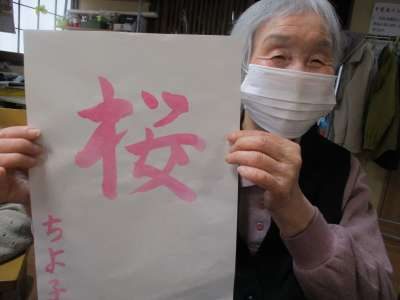 桜
ちよ子